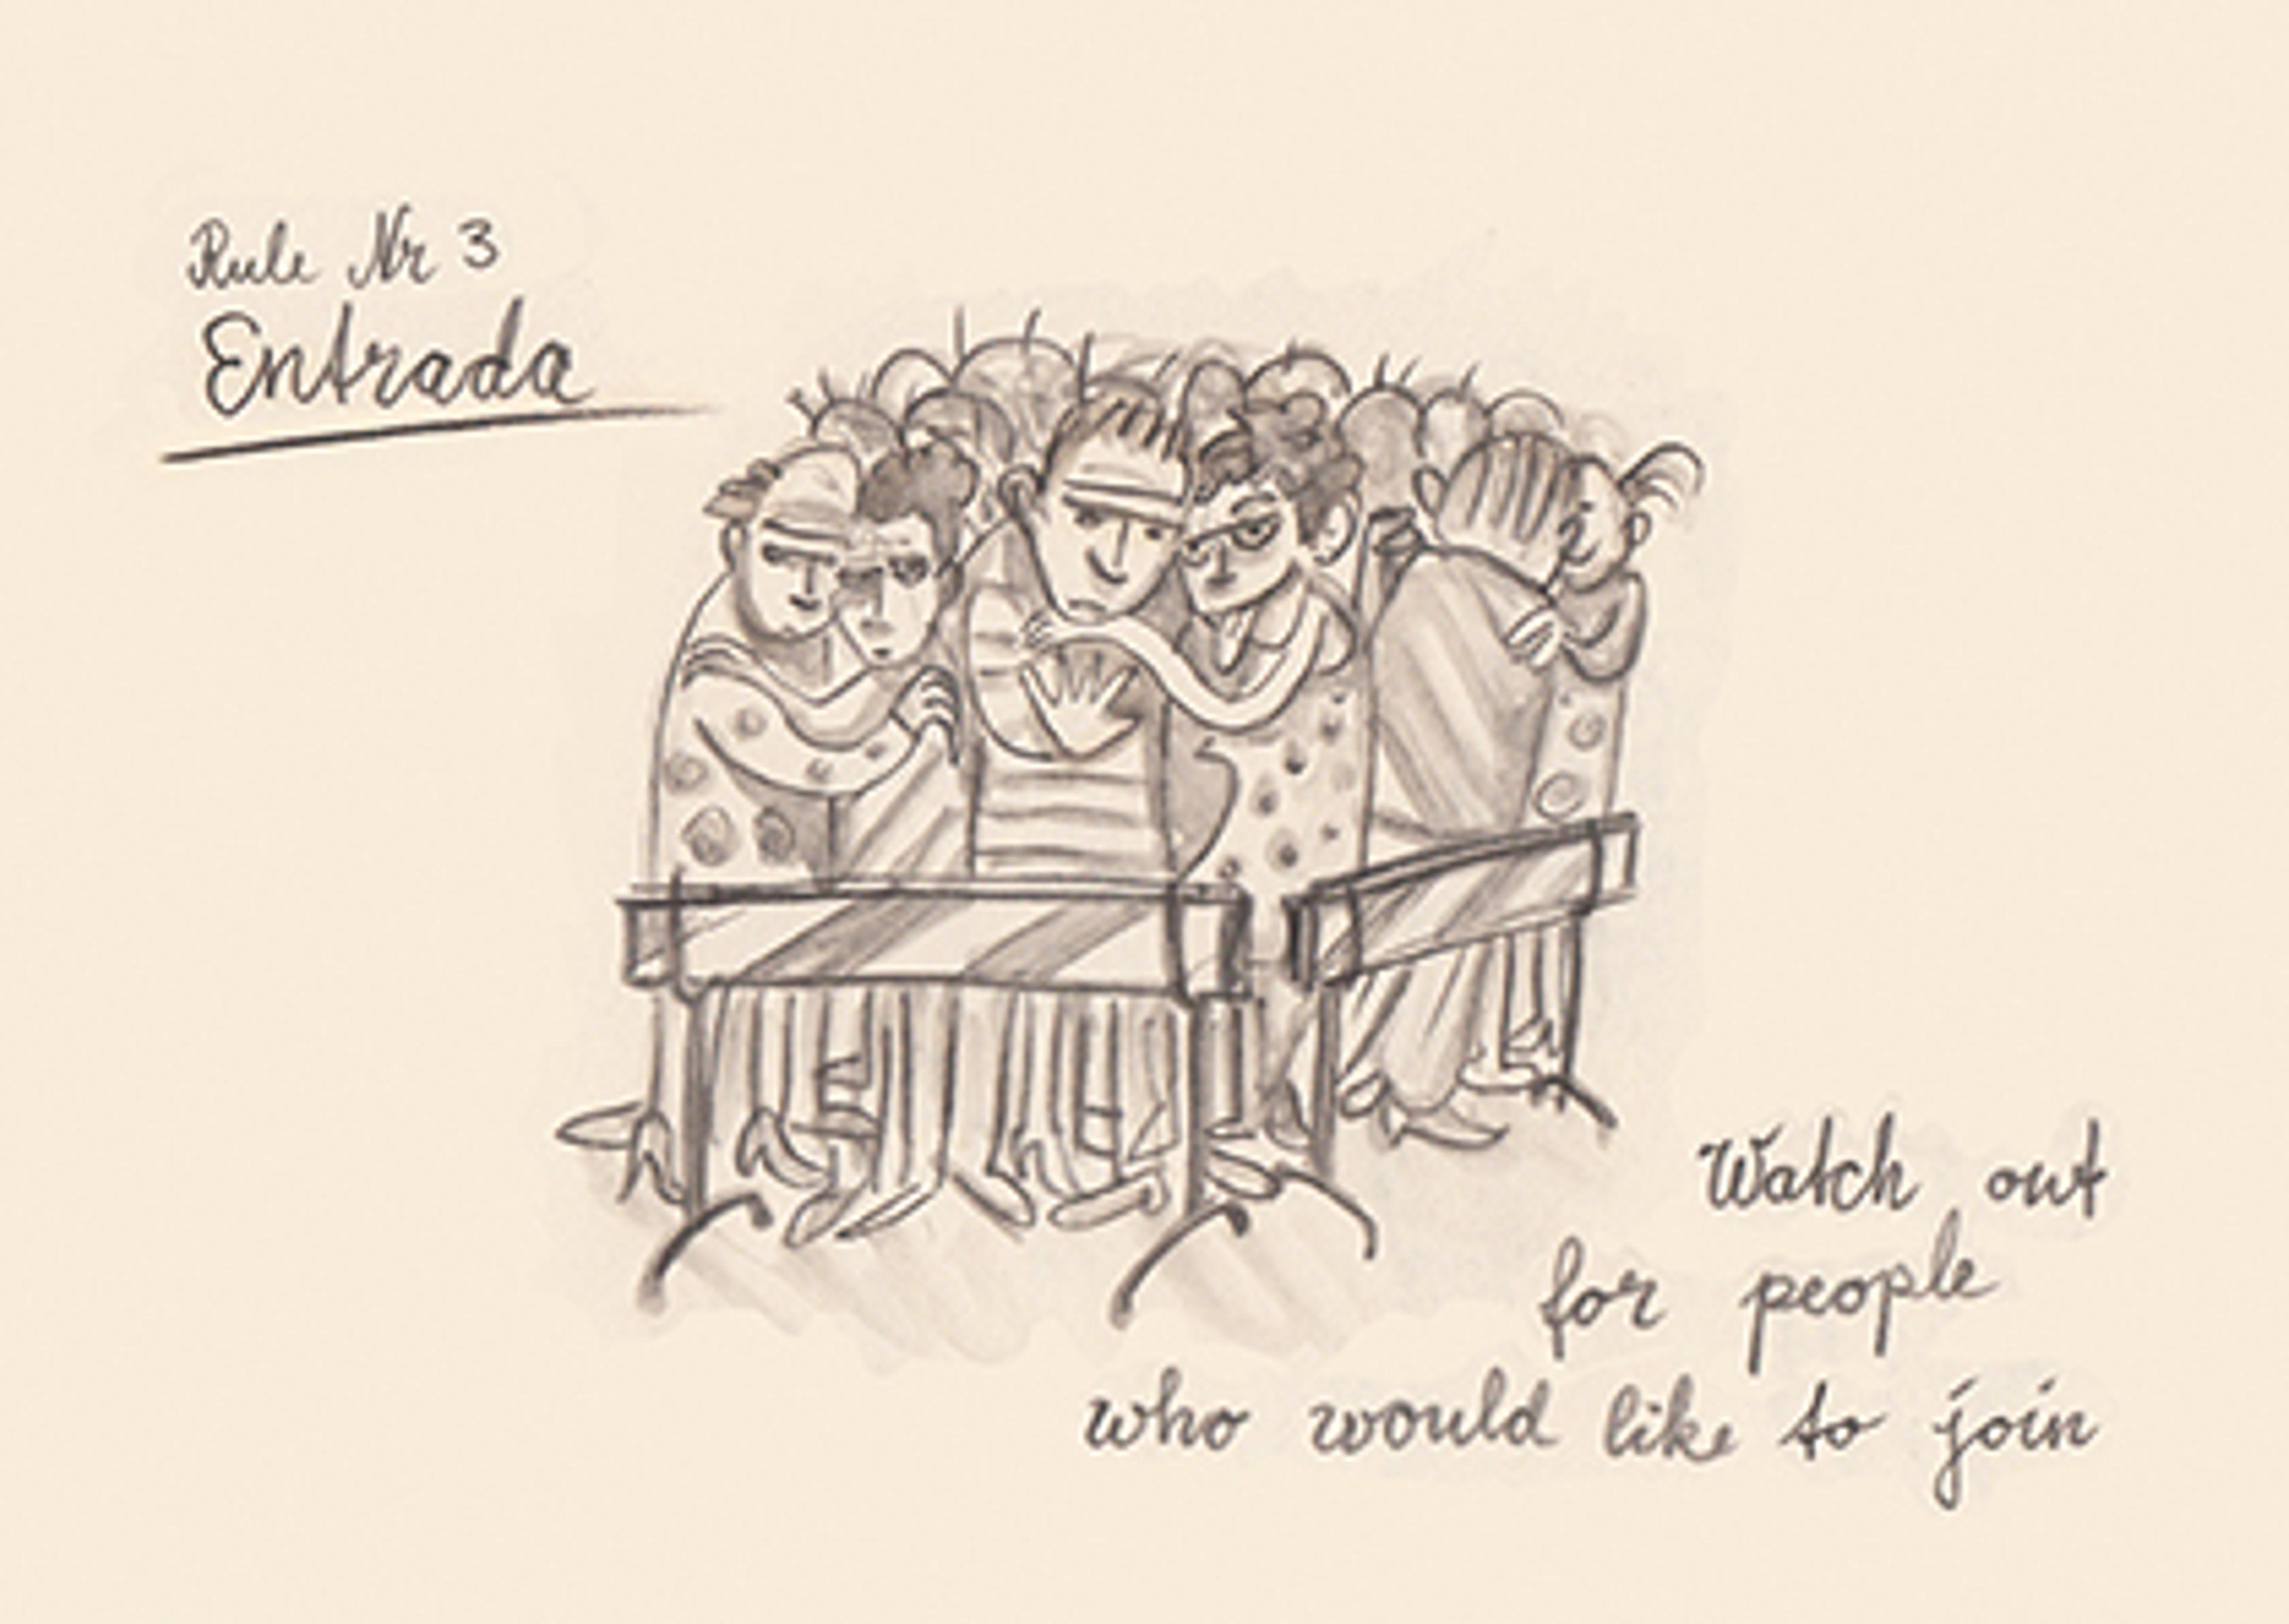 Rule Nr 3
Entrada
Watch out
for people
who would like to join